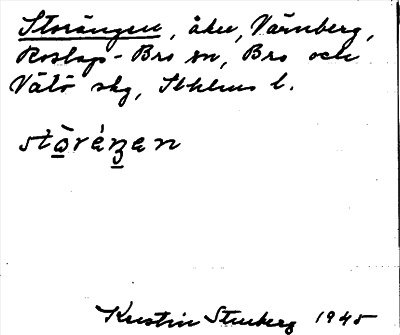 Storängen, åker, Värnberg,
Roslags-Bro sn, Bro och
Vätö skg, Sthlms l.
stòrä́ŋen
Kerstin Stenberg 1945